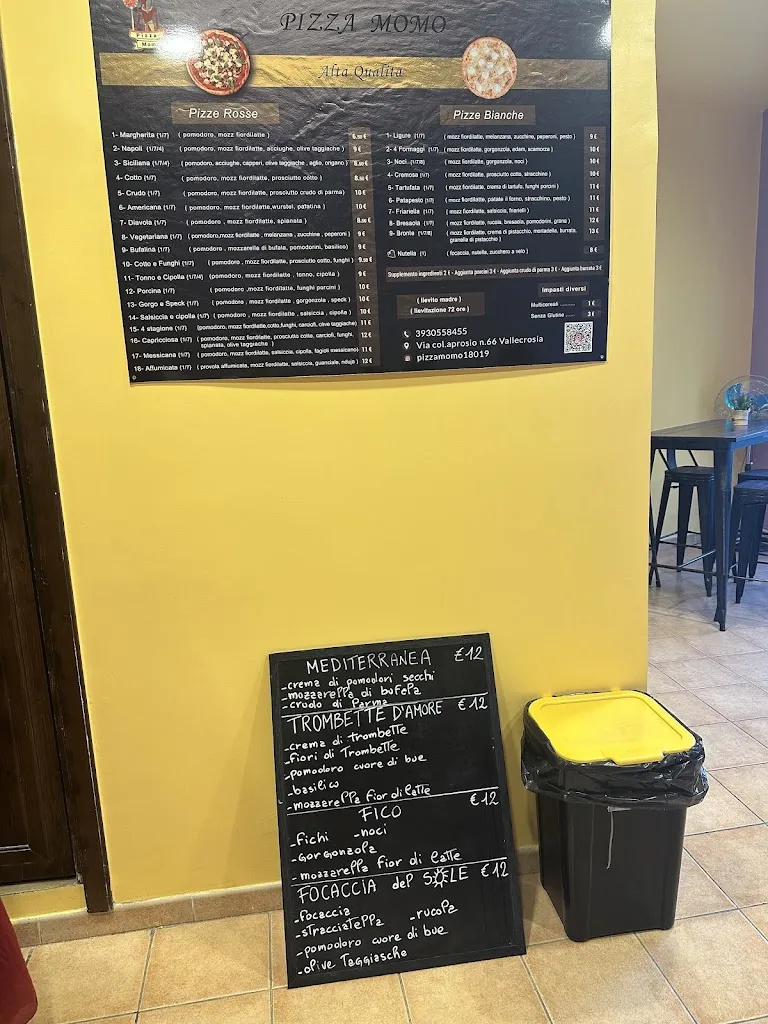 PIZZA MOMO
Alta Qualità
Pizze Rosse
1- Margherita (1/7) ( pomodoro, mozz fiordilatte ) 6.50 €
2- Napoli (1/4/7) ( pomodoro, mozz fiordilatte, acciughe, olive taggiasche ) 9 €
3- Siciliana (1/7/4) ( pomodoro, acciughe, capperi, olive taggiasche , aglio, origano ) 8.50 €
4- Cotto (1/7) ( pomodoro, mozz fiordilatte, prosciutto cotto ) 8.50 €
5- Crudo (1/7) ( pomodoro, mozz fiordilatte, prosciutto crudo di parma) 10 €
6- Americana (1/7) ( pomodoro, mozz fiordilatte,wurstel, patatina ) 10 €
7- Diavola (1/7) ( pomodoro , mozz fiordilatte , spianata ) 8.50 €
8- Vegetariana (1/7) ( pomodoro, mozz fiordilatte , melanzana , zucchine , peperoni ) 9 €
9- Bufalina (1/7) ( pomodoro , mozzarella di bufala, pomodorini, basilico) 9 €
10- Cotto e Funghi (1/7) ( pomodoro, mozz fiordilatte, prosciutto cotto, funghi ) 9.50 €
11- Tonno e Cipolla (1/7/4) (pomodoro, mozz fiordilatte , tonno, cipolla ) 9 €
12- Porcina (1/7) ( pomodoro ,mozz fiordilatte, funghi porcini ) 10 €
13- Gorgo e Speck (1/7) ( pomodoro, mozz fiordilatte , gorgonzola , speck ) 10 €
14- Salsiccia e cipolla (1/7) ( pomodoro , mozz fiordilatte , salsiccia , cipolla ) 10 €
15- 4 stagione (1/7) (pomodoro, mozz fiordilatte,cotto,funghi, carciofi, olive taggiasche) 11 €
16- Capricciosa (1/7) ( pomodoro, mozz fiordilatte, prosciutto cotto, carciofi, funghi, 12 €
spianata, olive taggiasche )
17- Messicana (1/7) ( pomodoro, mozz fiordilatte, salsiccia, cipolla, fagioli messicano) 11 €
18- Affumicata (1/7) ( provola affumicata, mozz fiordilatte, salsiccia, guanciale, nduja ) 12 €
Pizze Bianche
1- Ligure (1/7) ( mozz fiordilatte, melanzana, zucchine, peperoni, pesto ) 9 €
2- 4 Formaggi (1/7) ( mozz fiordilatte, gorgonzola, edam, scamorza ) 10 €
3- Noci (1/7/8) ( mozz fiordilatte, gorgonzola, noci ) 10 €
4- Cremosa (1/7) ( mozz fiordilatte, prosciutto cotto, stracchino ) 10 €
5- Tartufata (1/7) ( mozz fiordilatte, crema di tartufo, funghi porcini ) 11 €
6- Patapesto (1/7) ( mozz fiordilatte, patate il forno, stracchino, pesto ) 11 €
7- Friariella (1/7) ( mozz fiordilatte, salsiccia, friarielli ) 11 €
8- Bresaola (1/7) ( mozz fiordilatte, rucola, bresaola, pomodorini, grana ) 12 €
9- Bronte (1/7/8) ( mozz fiordilatte, crema di pistacchio, mortadella, burrata, 13 €
granella di pistacchio )
Nutella (1) ( focaccia, nutella, zucchero a velo ) 8 €
Supplemento ingredienti 2 € - Aggiunta porcini 3 € - Aggiunta crudo di parma 3 € - Aggiunta burrata 3 €
( lievito madre )
( lievitazione 72 ore )
Impasti diversi
Multicereali 1 €
Senza Glutine 3 €
3930558455
Via col.aprosio n.66 Vallecrosia
pizzamomo18019
MEDITERRANEA €12
-crema di pomodori secchi
-mozzarella di bufela
-crudo di Parma
TROMBETTE D'AMORE €12
-crema di trombette
-fiori di Trombette
-pomodoro cuore di bue
-basilico
-mozzarella fior di latte
FICO €12
-fichi -noci
-Gorgonzola
-mozzarella fior di latte
FOCACCIA del SOLE €12
-focaccia
-stracciatella -rucola
-pomodoro cuore di bue
-olive Taggiasche